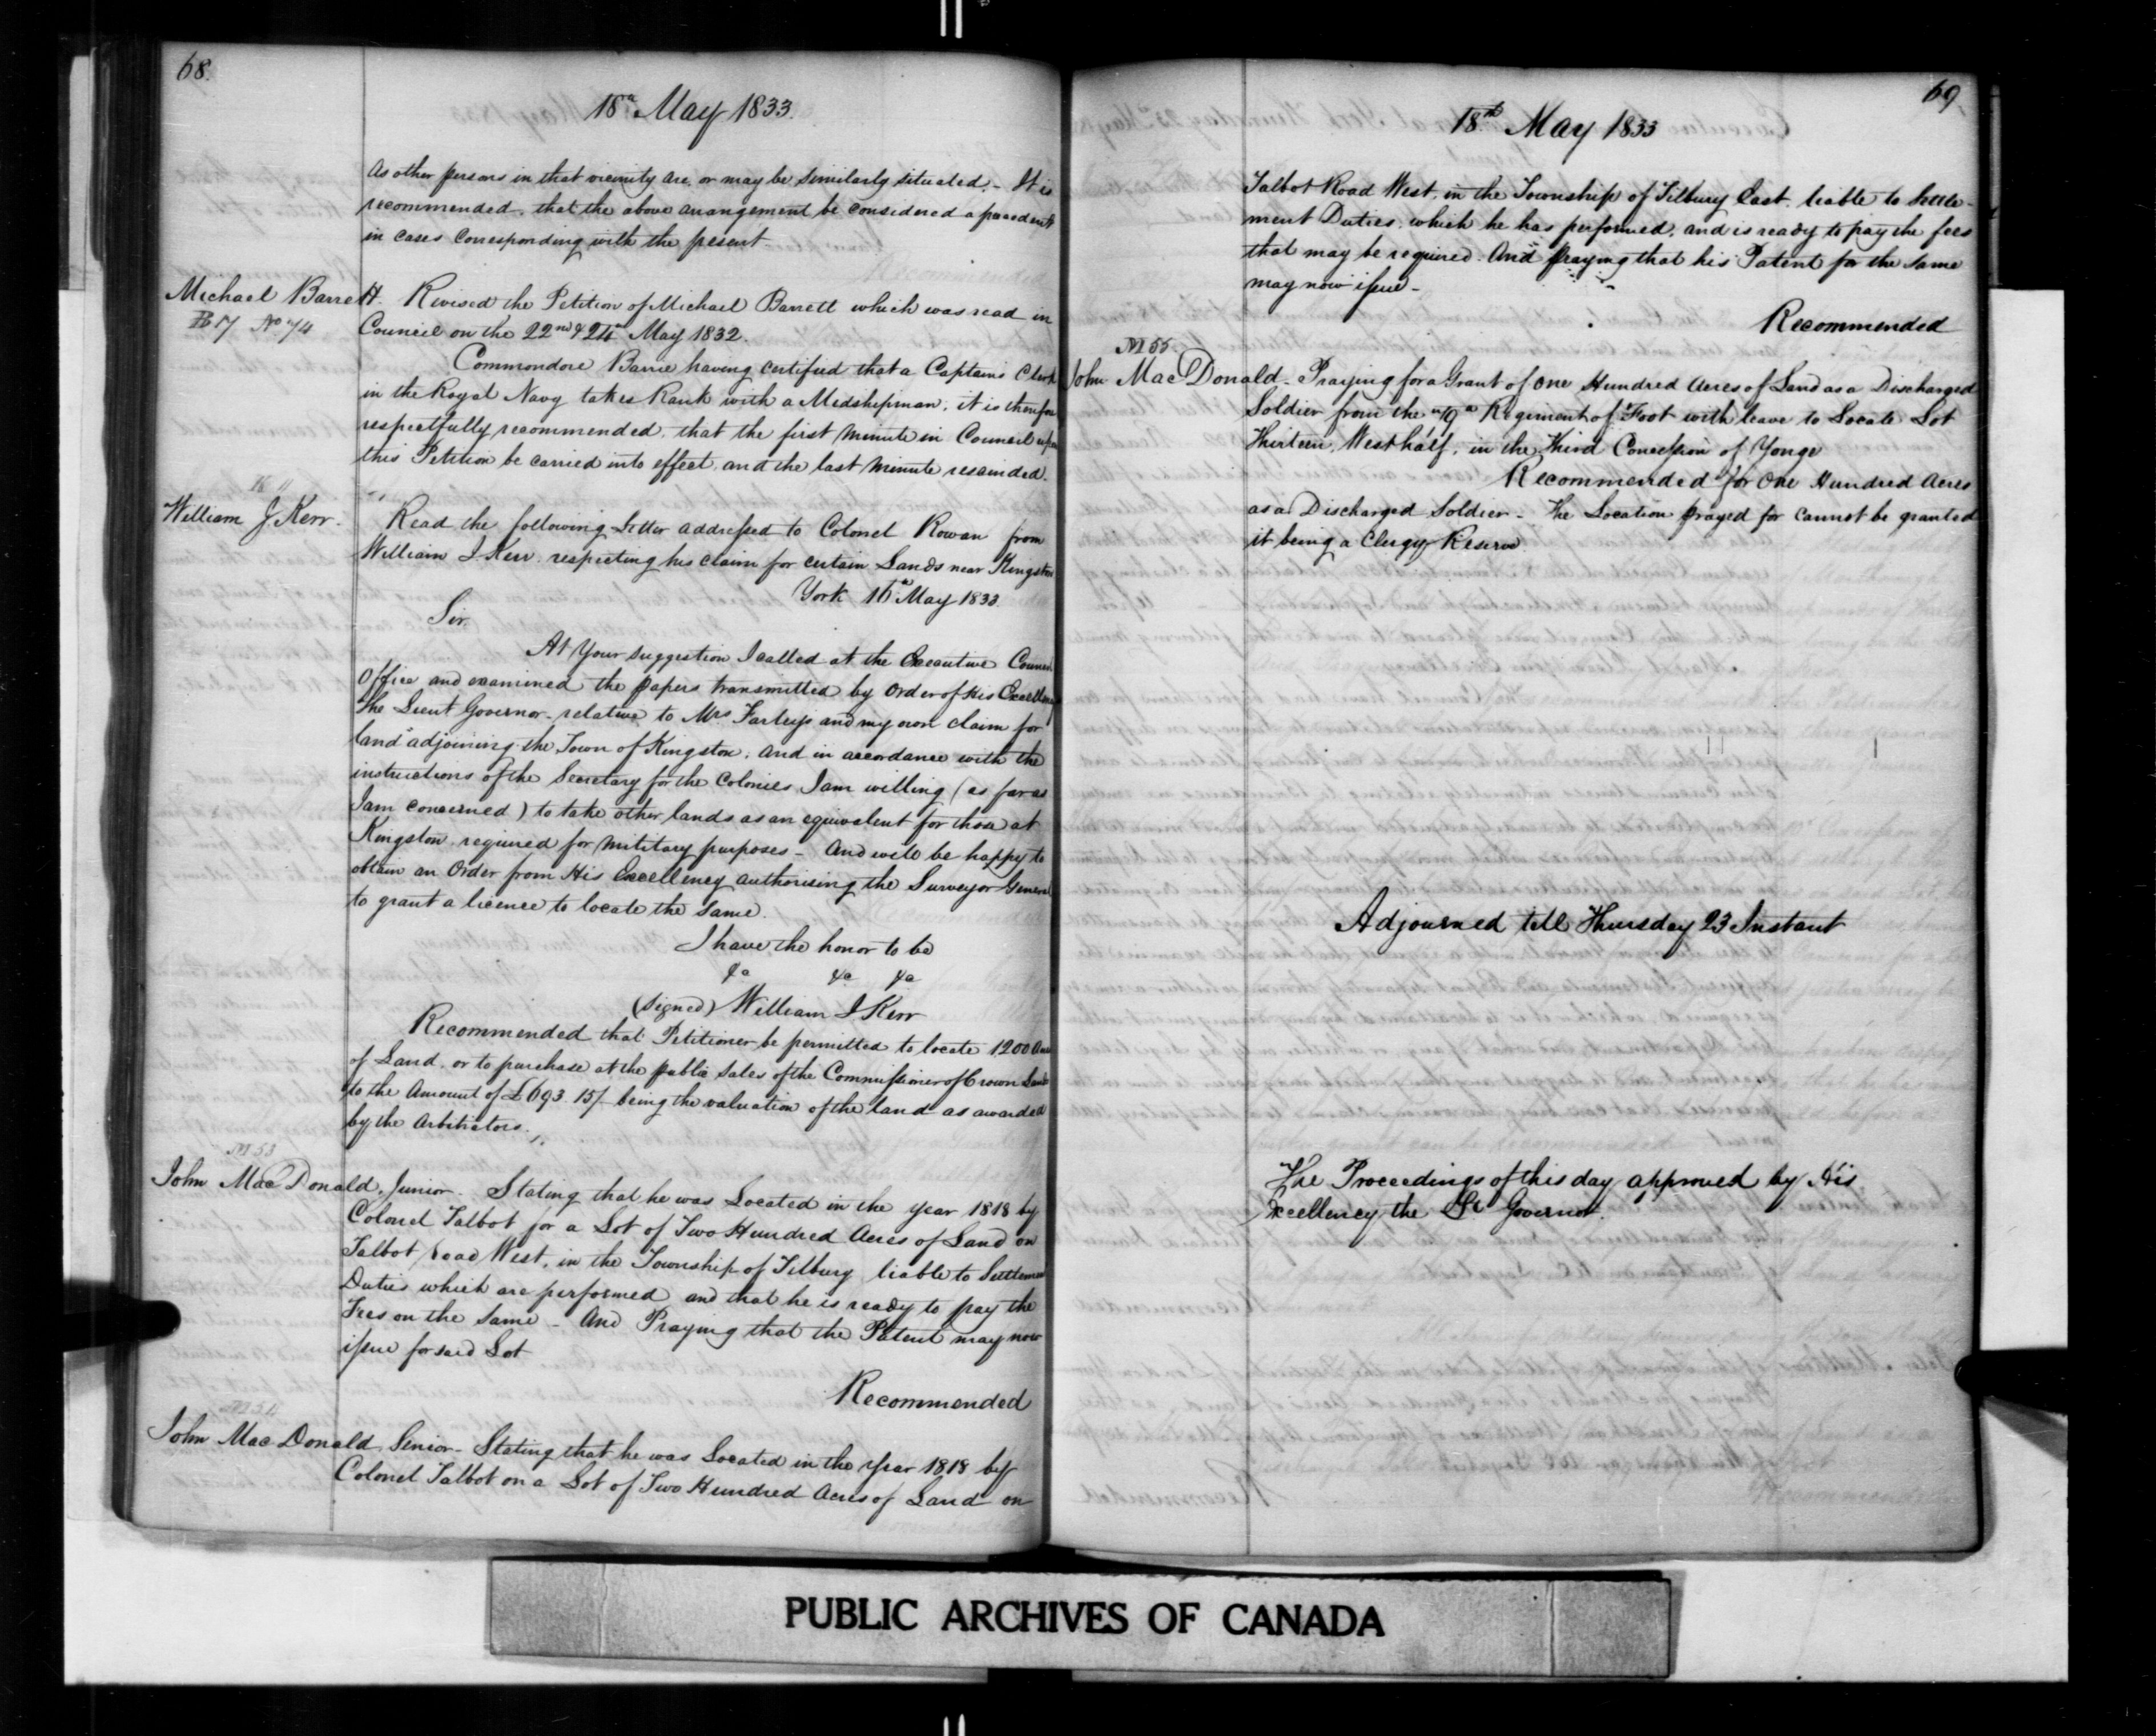 68.
18th May 1833.
As other persons in that vicinity are, or may be similarly situated, - It is
recommended, that the above arrangement be considered a precedent
in cases corresponding with the present
Michael Barrett. Revised the Petition of Michael Barrett which was read in
B 17 No 74 Council on the 22nd & 24th May 1832.
Commondore Barrie having certified that a Captain's Clerk
in the Royal Navy takes Rank with a Midshipman, it is therefore
respectfully recommended, that the first Minute in Council upon
this Petition be carried into effect, and the last Minute rescinded.
K 11
William J Kerr. Read the following Letter addressed to Colonel Rowan from
William J. Kerr, respecting his claim for certain Lands near Kingston
York 16th May 1833.
Sir,
At Your suggestion I called at the Executive Council
Office and examined the papers transmitted by Order of His Excellency
the Lieut Governor, relative to Mrs Farley's and my own claim for
land adjoining the Town of Kingston, and in accordance with the
instructions of the Secretary for the Colonies I am willing (as far as
I am concerned) to take other lands as an equivalent for those at
Kingston, required for military purposes - And will be happy to
obtain an Order from His Excellency authorising the Surveyor General
to grant a licence to locate the same.
I have the honor to be
&a &a &a
(signed) William J Kerr
Recommended that Petitioner be permitted to locate 1200 Acres
of Land, or to purchase at the public sales of the Commissioner of Crown Lands
to the Amount of £693. 15/. being the valuation of the land as awarded
by the Arbitrators.
M 53
John Mac Donald, Junior. Stating that he was Located in the year 1818 by
Colonel Talbot for a Lot of Two Hundred Acres of Land on
Talbot Road West, in the Township of Tilbury liable to Settlement
Duties which are performed and that he is ready to pay the
Fees on the same - And Praying that the Patent may now
issue for said Lot
Recommended
M 54
John Mac Donald, Senior - Stating that he was Located in the year 1818 by
Colonel Talbot on a Lot of Two Hundred Acres of Land on
69
18th May 1833
Talbot Road West, in the Township of Tilbury East, liable to Settle-
ment Duties, which he has performed, and is ready to pay the fees
that may be required. And Praying that his Patent for the same
may now issue -
Recommended
M 55
John Mac Donald - Praying for a Grant of One Hundred Acres of Land as a Discharged
Soldier from the 79th Regiment of Foot with leave to Locate Lot
Thirteen, West half, in the Third Concession of Yonge
Recommended for One Hundred Acres
as a Discharged Soldier - The Location prayed for cannot be granted
it being a Clergy Reserve.
Adjourned till Thursday 23 Instant
The Proceedings of this day approved by His
Excellency the Lt Governor.
PUBLIC ARCHIVES OF CANADA